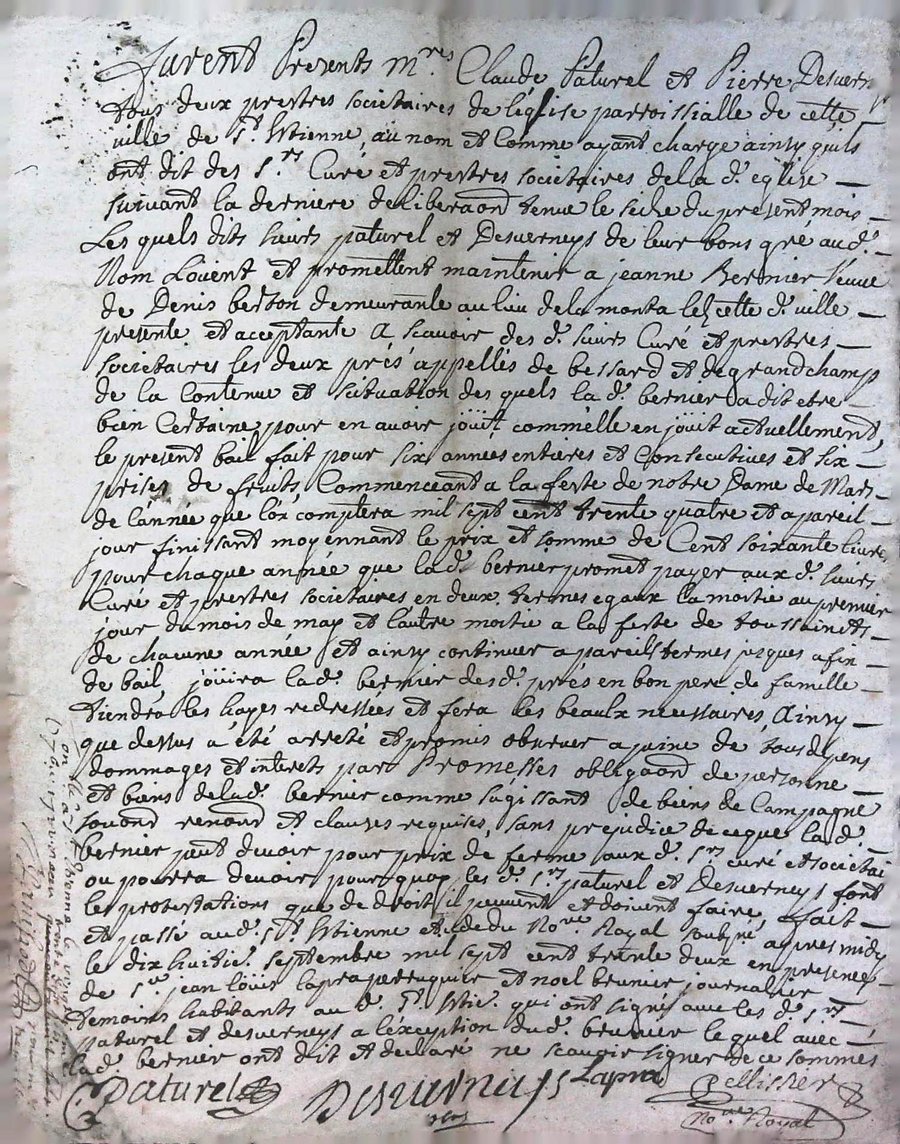 furent Presents m.res Claude Paturel et Pierre Desuern
tous deux prestres societaires de léglise parroissialle de cette
ville de S.t Estienne, au nom et comme ayant charge ainsy quils
ont dit des S.rs Curé et prestres societaires dela d. église —
suivant la derniere deliberaõn tenue le du present mois —
Les quels dits sieurs paturel et Desuerneys de leur bons gré au d.
Nom Louent et promettent maintenir a jeanne Bernier veuve
de Denis berton demeurante au lieu dela monta lez cette d. ville —
presente et acceptante A scavoir des d. sieurs Curé et prestres —
societaires les deux prés appellés de bessard et de grandchamp
de la contenue et scituation des quels la d. bernier a dit etre —
bien Certaine pour en avoir joüit comme elle en joüit actuellement,
le present bail fait pour six années entieres et Consecutives et six —
prises de fruits Commenceant a la feste de notre Dame de Mars —
de lannée que lon comptera mil sept cent trente quatre et a pareil —
jour finissant moyennant le prix et somme de Cent soixante livres
pour chaque année que la d. bernier promet payer aux d. sieurs
Curé et prestres societaires en deux termes egaux la moitié au premier
jour du mois de may et lautre moitie a la feste de toussaincts —
de chacune année et ainsy continuer a pareils termes jusques a fin —
de bail, joüira la d. bernier des d. prés en bon pere de famille —
tiendra les hayes redressées et fera les beaulx necessaires, Ainsy —
que dessus a été arreté et promis observer a peine de tous depens
dommages et interets par Promesses obligaõn de personne —
et biens dela d. bernier comme sagissant de biens de Campagne
renonõ et clauses requises, sans prejudice de ce que la d.
bernier peut devoir pour prix de ferme aux d. S.rs curé et societai
ou pourra devoir pour quoy les d. S.rs paturel et Desuerneys font
les protestations que de droit il peuvent et doivent faire, fait —
et passe au d. S.t Estienne etude du No.re Royal soubsné apres midy
le dix huitie. septembre mil sept cent trente deux en presence
de S.r jean loüis lapra perruquier et noel brunier journalier
temoins habitants au d. S.t Estie. qui ont signés avec les d. S.rs —
paturel et desuerneys a lexception du d. brunier lequel avec —
la d. bernier ont dit et declaré ne scavoir signer de ce sommés
Paturel Desuerneys Lapra Pellissier
No.re Royal